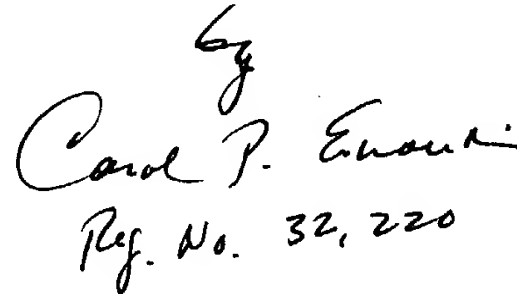 by
Carol P. Einaudi
Reg. No. 32,220